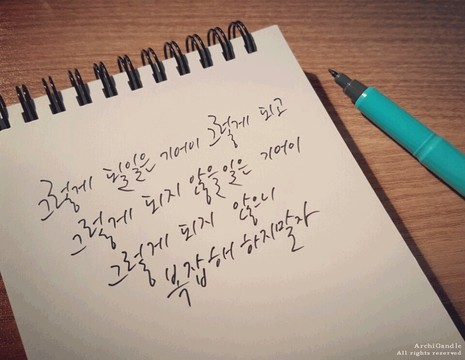 그렇게 될일은 기어이 그렇게 되고
그렇게 되지 않을일은 기어이
그렇게 되지 않으니
복잡해 하지말자
ArchiCandle
All rights reserved